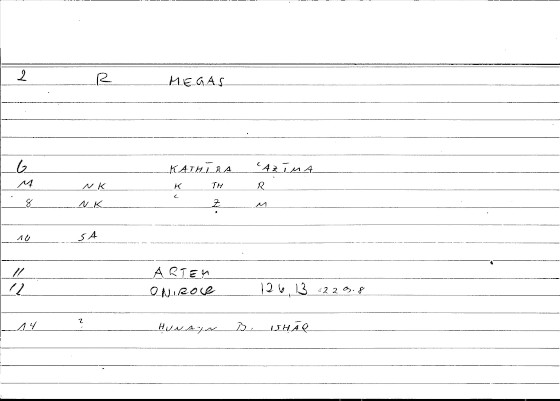 2 R MEGAS
6 KATHĪRA ʿAẒĪMA
M NK K TH R
8 NK ʿ Ẓ M
10 SA
11 ARTEM
12 ONIROCR 126,13 -229.8
14 ? ḤUNAYN B. ISḤĀQ